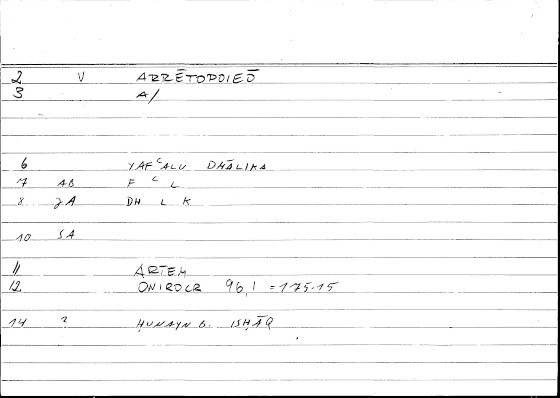 2 V ARRĒTOPOIEŌ
3 A/
6 YAFᶜALU DHĀLIKA
7 AB F ᶜ L
8 JA DH L K
10 SA
11 ARTEM
12 ONIROCR 96,1 = 175.15
14 ? ḤUNAYN B. ISḤĀQ